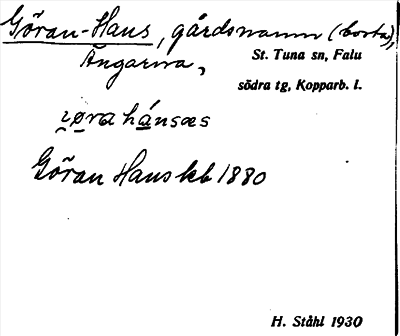 Göran-Hans, gårdsnamn (borta),
Ängarna, St. Tuna sn, Falu
södra tg, Kopparb. l.
hánsæs
Göran Hans kb 1880
H. Ståhl 1930